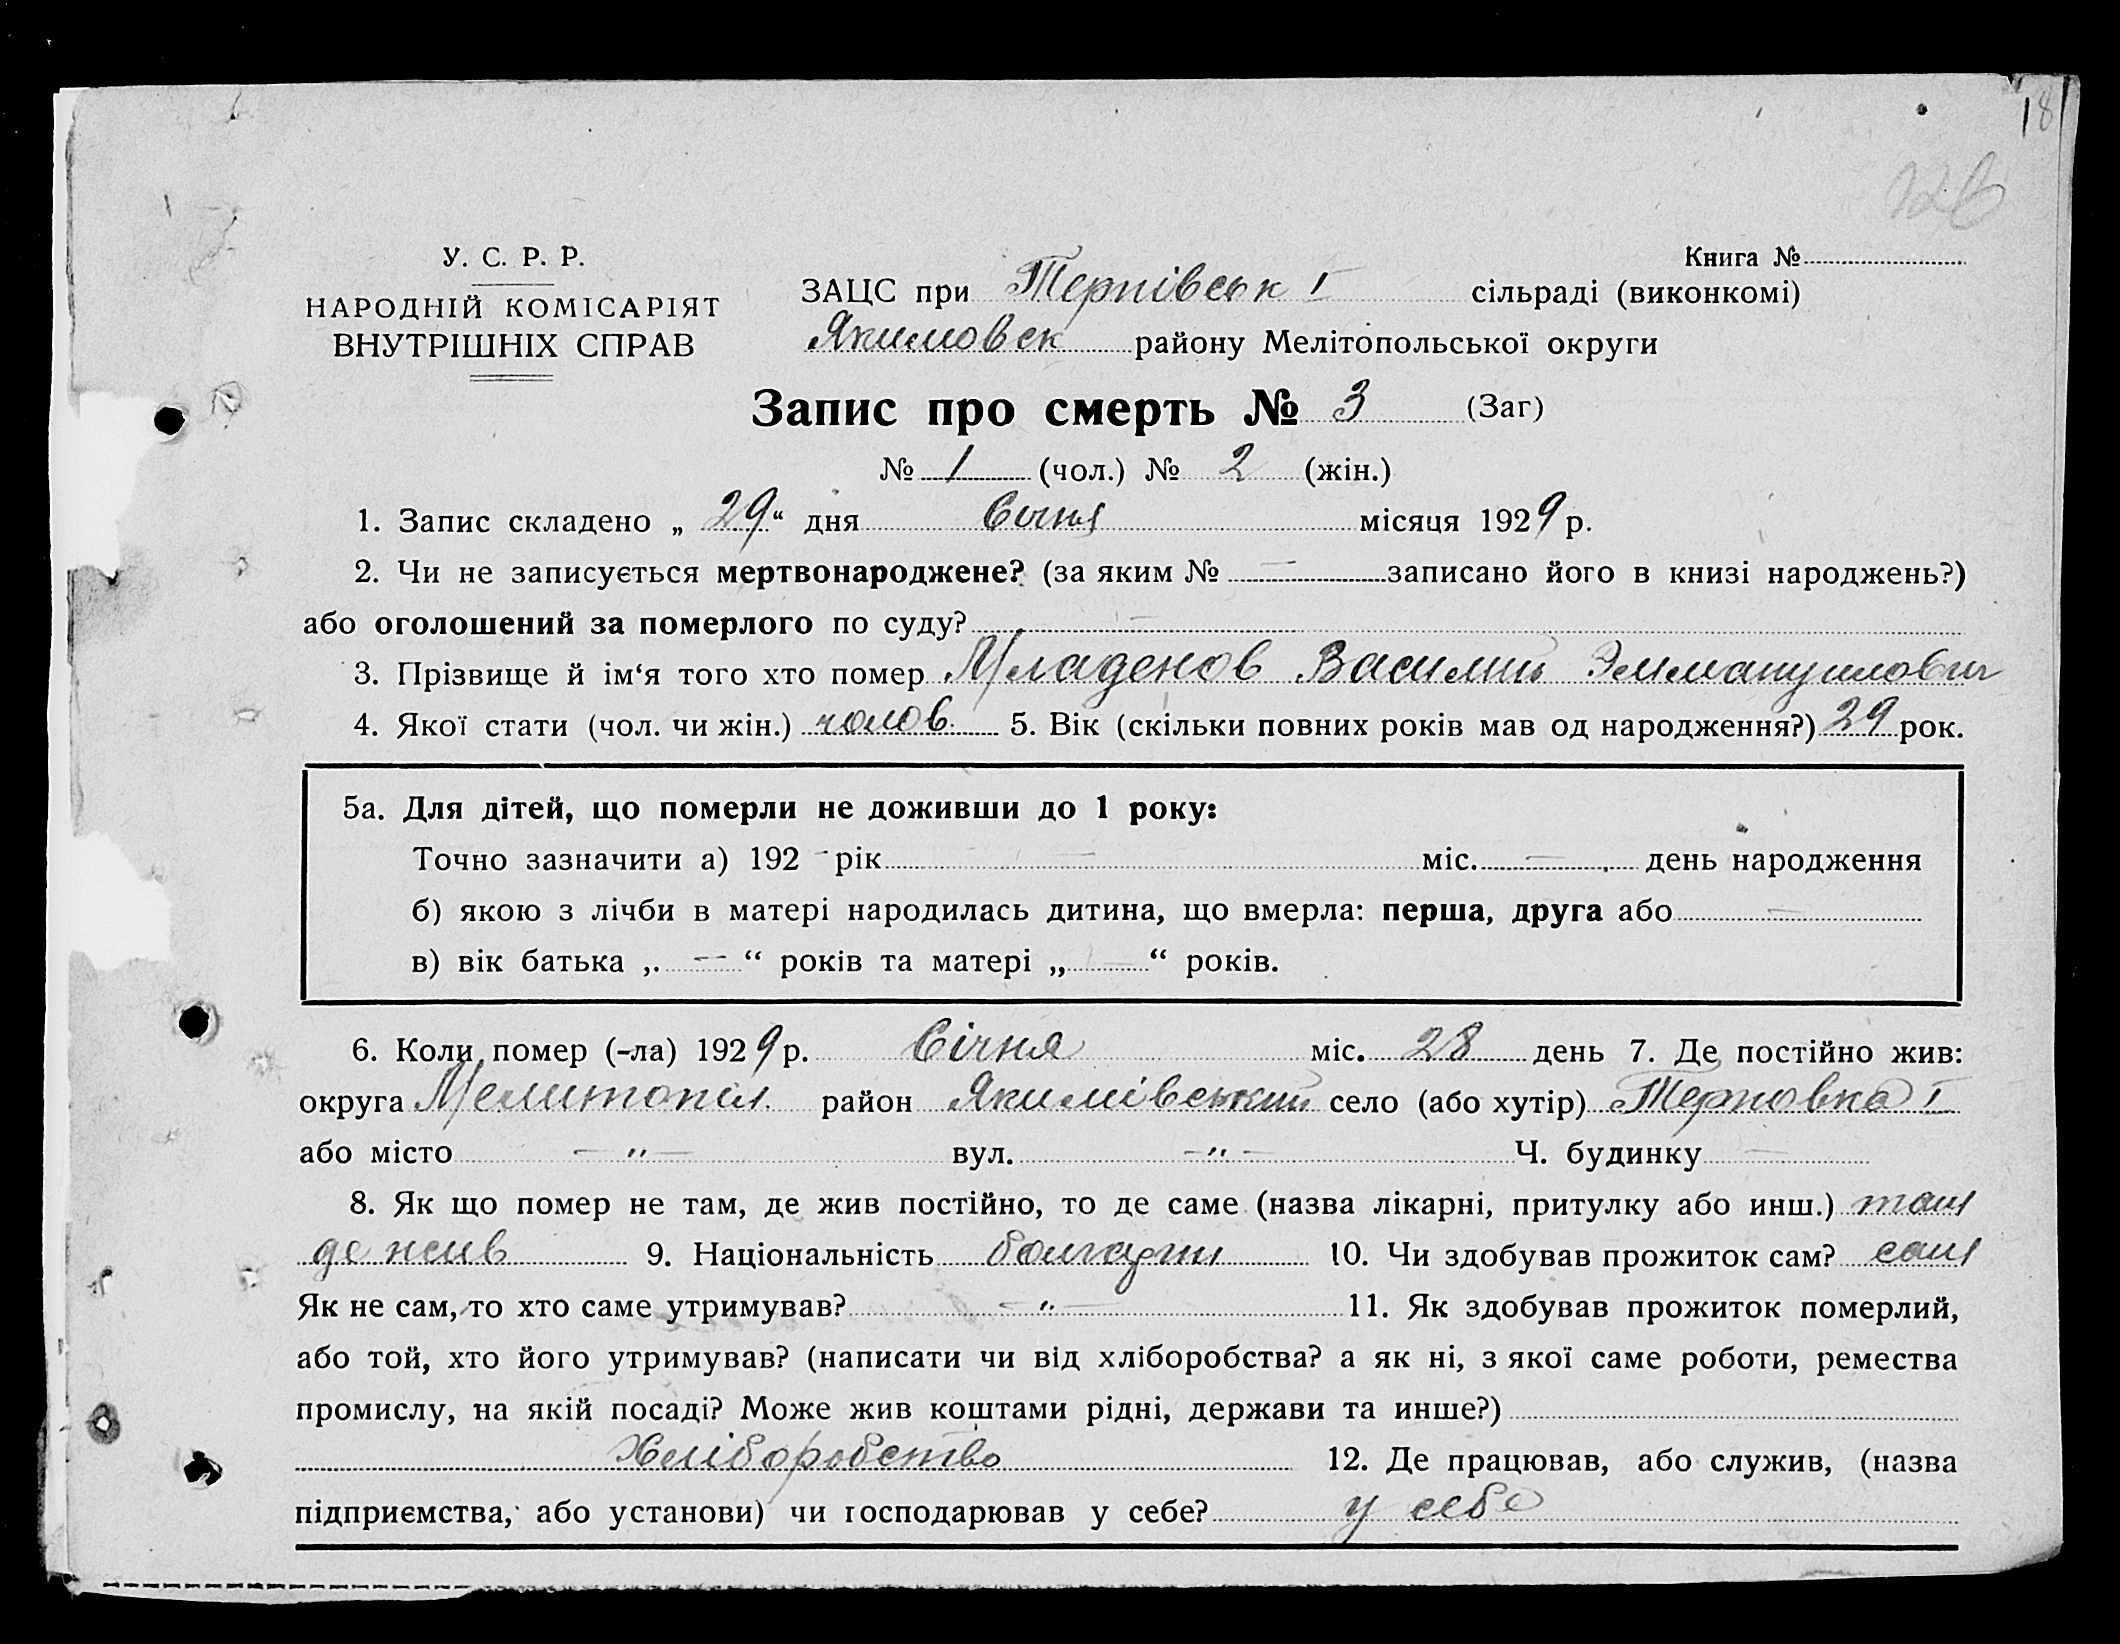 18
126
У. С. Р. Р.
НАРОДНІЙ КОМІСАРІЯТ
ВНУТРІШНІХ СПРАВ
Книга №
ЗАЦС при Терпівськ I сільраді (виконкомі)
Якимовск району Мелітопольської округи
Запис про смерть № 3 (Заг)
№ 1 (чол.) № 2 (жін.)
1. Запис складено „ 29 “ дня Січня місяця 1929 р.
2. Чи не записується мертвонароджене? (за яким № — записано його в книзі народжень?)
або оголошений за померлого по суду? —
3. Прізвище й ім‘я того хто помер Младенов Василий Эммануилович
4. Якої стати (чол. чи жін.) чолов. 5. Вік (скільки повних років мав од народження?) 29 рок.
5а. Для дітей, що померли не доживши до 1 року:
Точно зазначити а) 192 - рік — міс. — день народження
б) якою з лічби в матері народилась дитина, що вмерла: перша, друга або —
в) вік батька „ — “ років та матері „ — “ років.
6. Коли помер (-ла) 1929 р. Січня міс. 28 день 7. Де постійно жив:
округа Мелитопіл. район Якимівський село (або хутір) Терповка I
або місто — " — вул. — " — Ч. будинку —
8. Як що помер не там, де жив постійно, то де саме (назва лікарні, притулку або инш.) там
де жив 9. Національність болгарин 10. Чи здобував прожиток сам? сам
Як не сам, то хто саме утримував? — " — 11. Як здобував прожиток померлий,
або той, хто його утримував? (написати чи від хліборобства? а як ні, з якої саме роботи, ремества
промислу, на якій посаді? Може жив коштами рідні, держави та инше?)
Хліборобство 12. Де працював, або служив, (назва
підприємства, або установи) чи господарював у себе? у себе